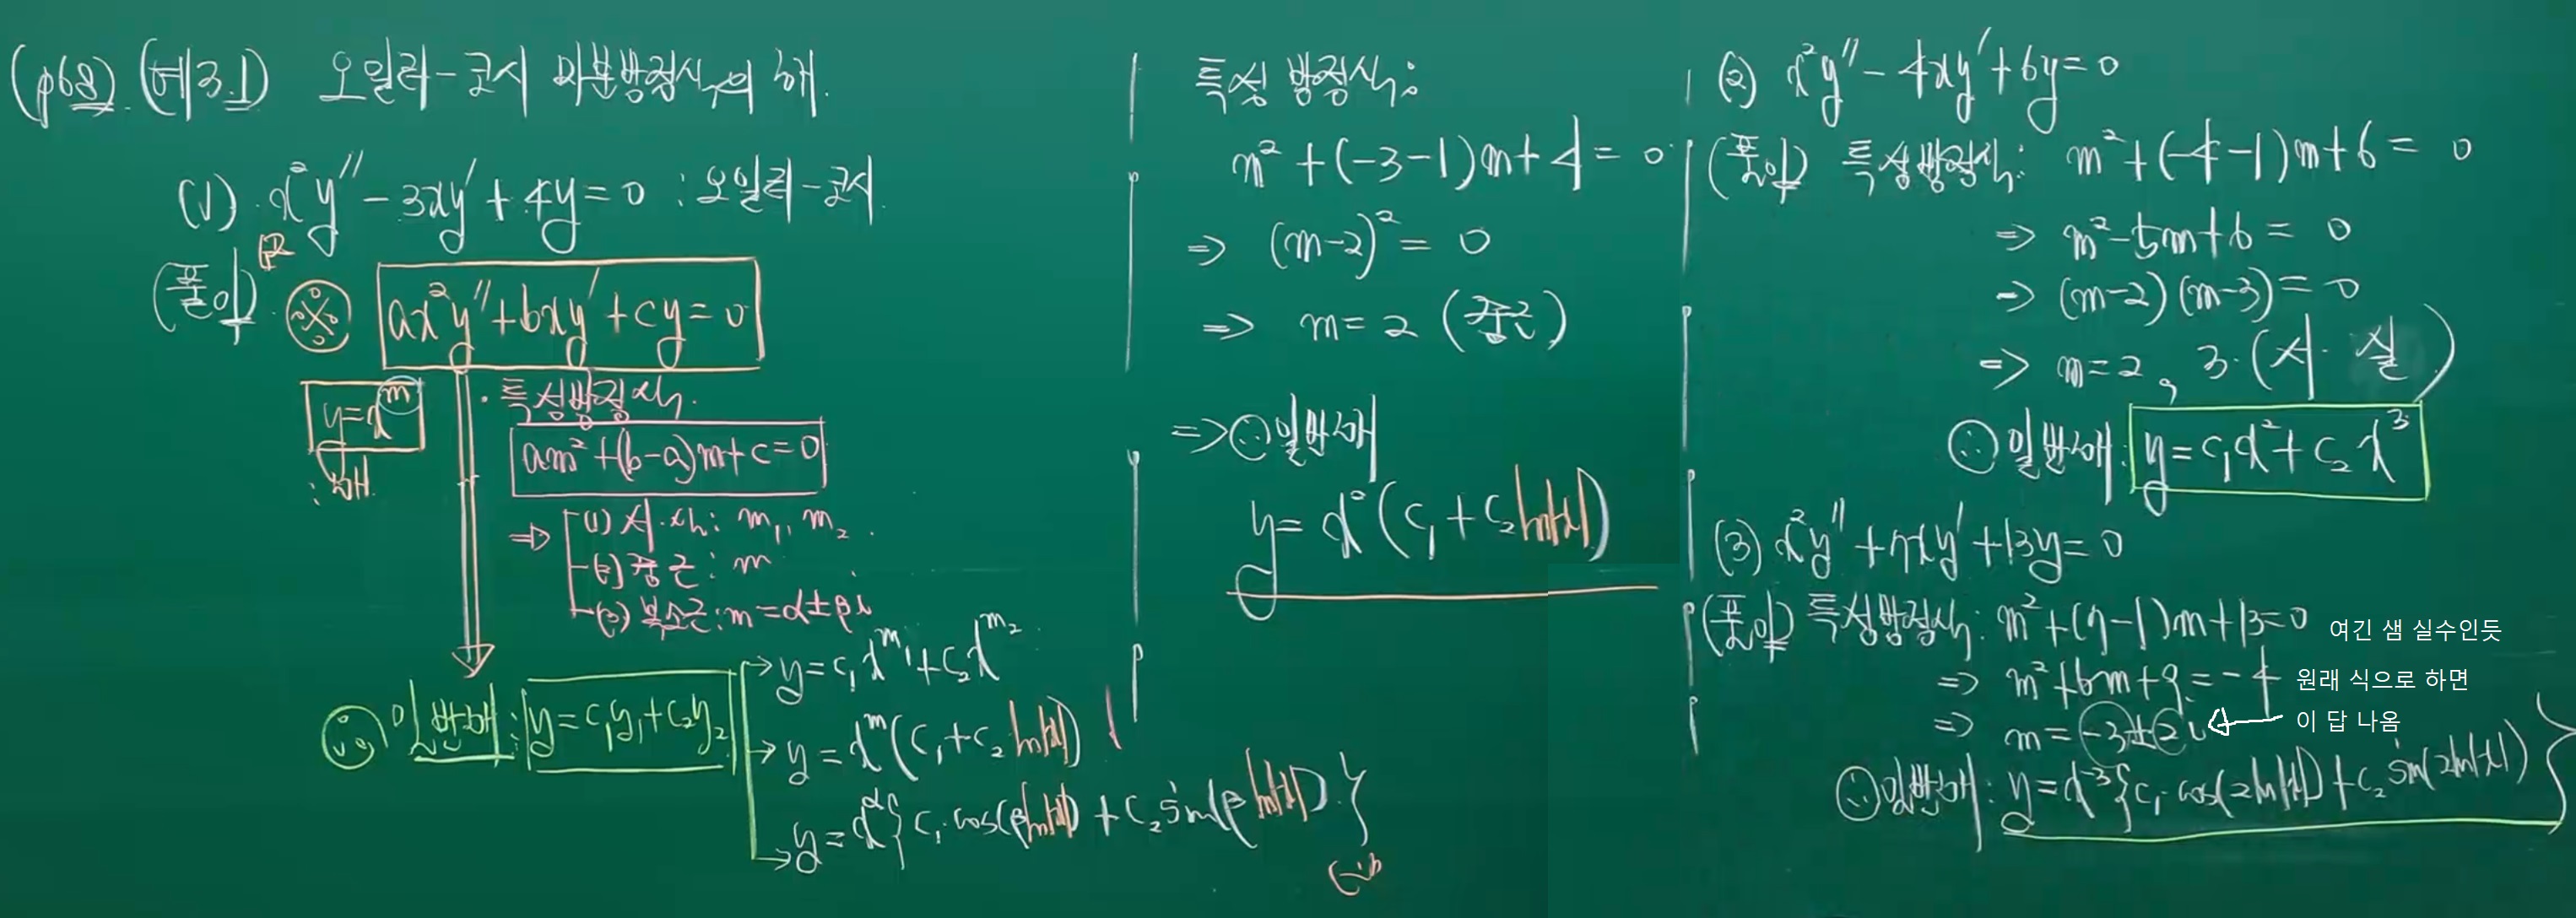 (p68). (예3.1) 오일러-코시 미분방정식의 해.
(1). x²y″ - 3xy′ + 4y = 0 : 오일러-코시.
(풀이)
ax²y″ + bxy′ + cy = 0
y = x^m
: 해.
· 특성방정식.
am² + (b-a)m + c = 0
⇒ (1) 서.실: m₁, m₂.
(2) 중근: m
(3) 복소근: m = α ± βi
∴ 일반해: y = c₁y₁ + c₂y₂
→ y = c₁x^m₁ + c₂x^m₂
→ y = x^m (c₁ + c₂ ln|x|)
→ y = x^α { c₁ cos(β ln|x|) + c₂ sin(β ln|x|) }
특성방정식:
m² + (-3-1)m + 4 = 0
⇒ (m-2)² = 0
⇒ m = 2 (중근)
⇒ ∴ 일반해
y = x² (c₁ + c₂ ln|x|)
(2) x²y″ - 4xy′ + 6y = 0
(풀이) 특성방정식: m² + (-4-1)m + 6 = 0
⇒ m² - 5m + 6 = 0
⇒ (m-2)(m-3) = 0
⇒ m = 2, 3. (서.실)
∴ 일반해: y = c₁x² + c₂x³
(3) x²y″ + 7xy′ + 13y = 0
(풀이) 특성방정식: m² + (7-1)m + 13 = 0 여긴 샘 실수인듯
⇒ m² + 6m + 9 = -4 원래 식으로 하면
⇒ m = -3 ± 2i 이 답 나옴
∴ 일반해: y = x⁻³ { c₁ cos(2ln|x|) + c₂ sin(2ln|x|) }